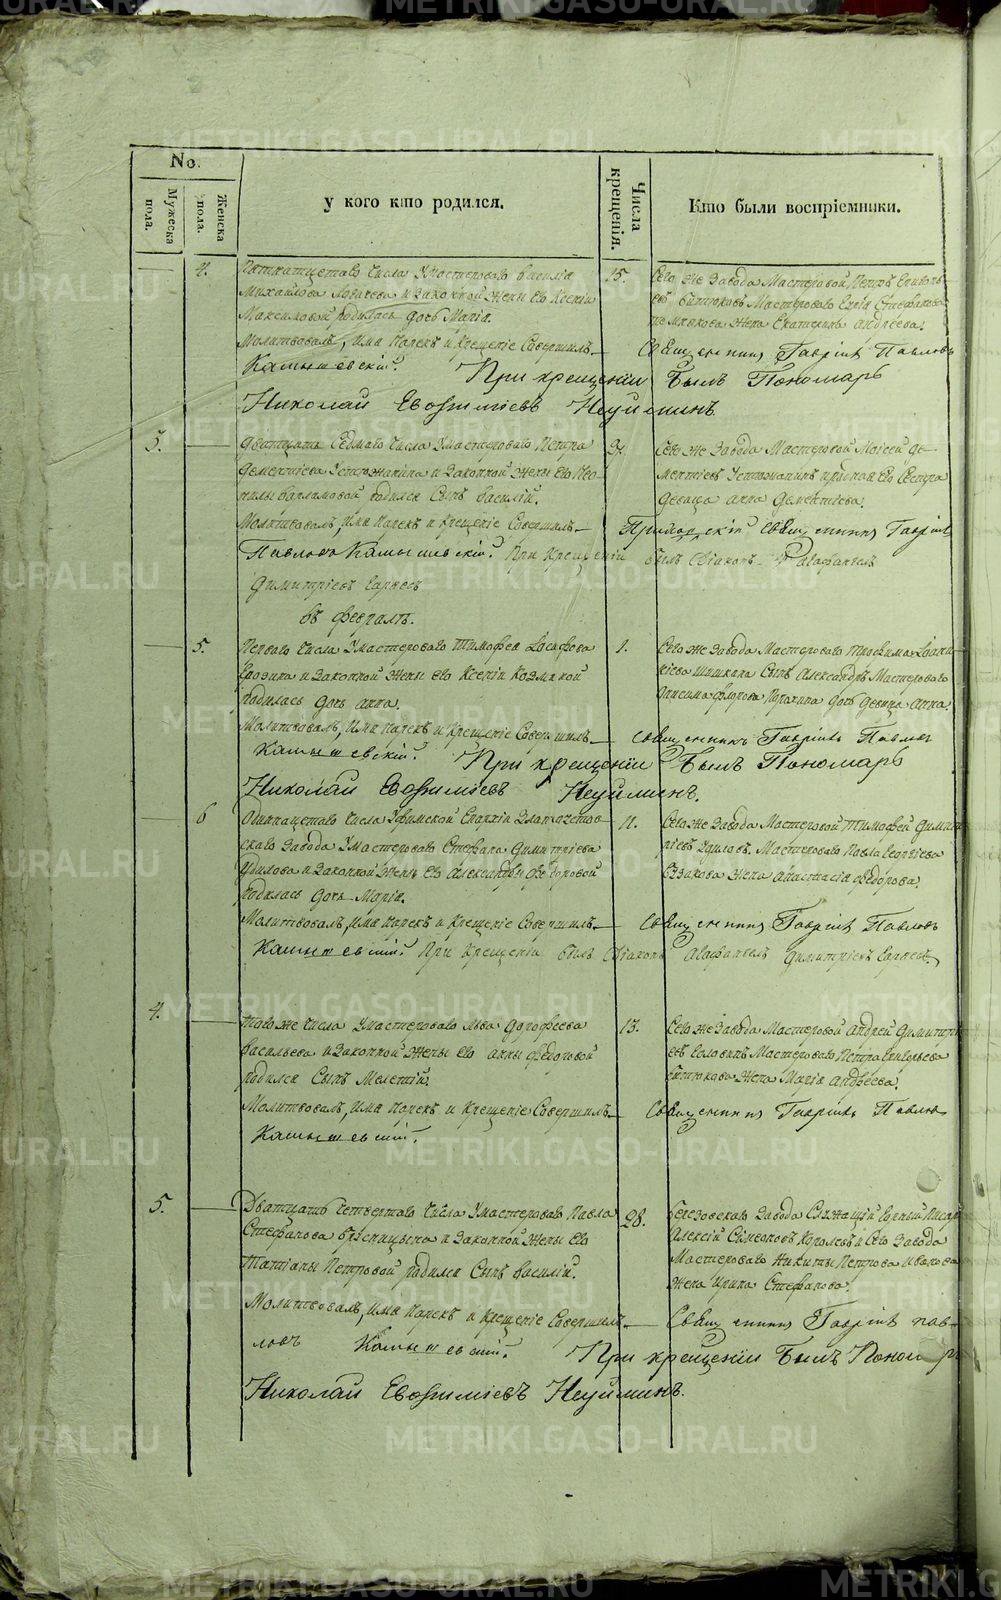 No.
Мужеска пола.
Женска пола.
у кого кто родился.
Числа крещенія.
Кто были воспріемники.
4.
Пятнатцетаго числа Умастероваго Василія
Михайлова и законной жены его Ксеніи
Максимовой родилась дочь Марія.
Молитвовалъ, имя нарекъ и крещеніе совершилъ
Камышевскій. При крещеніи былъ Пономарь
Николай Евѳиміевъ Неуйминъ
15.
Сего же завода Мастеровой Петръ
Мастероваго
жена Екатерина Андреева.
Священникъ Гавріилъ Павловъ
3.
Дватцать седмаго числа Умастероваго Петра
Дементіева Устюжанина и законной жены его
Варламовой родился сынъ Василій.
Молитвовалъ, имя нарекъ и крещеніе совершилъ
Павловъ Камышевскій. При крещеніи
Димитріевъ
Сего же завода Мастеровой Моисей Де-
ментіевъ Устюжанинъ его сестра
девица Анна Дементіева.
священникъ Гавріилъ
былъ Діаконъ Агафангелъ
въ февралѣ.
5.
Перваго числа Умастероваго Тимофея
и законной жены его Ксеніи Козминой
родилась дочь Анна.
Молитвовалъ, имя нарекъ и крещеніе совершилъ
Камышевскій. При крещеніи былъ Пономарь
Николай Евѳиміевъ Неуйминъ.
1.
Сего же завода Мастероваго Трофима
Шишкина сынъ Александръ Мастероваго
Анисима Фролова дочь девица Анна.
священникъ Гавріилъ Павлов
6
Одиннацетаго числа Уфимской Епархіи Златоустов-
скаго завода Умастероваго Стефана Димитріева
и законной жены его Александры Федоровой
родилась дочь Марія.
Молитвовалъ, имя нарекъ и крещеніе совершилъ
Камышевскій. При крещеніи былъ Діаконъ Агафангелъ Димитріевъ
11.
Сего же завода Мастеровой Тимофей Димит-
ріевъ Мастероваго Павла Георгіева
жена Анастасія Федорова.
священникъ Гавріилъ Павловъ
4.
Того же числа Умастероваго Льва Дорофеева
Васильева и законной жены его Анны Федоровой
родился сынъ Мелетій.
Молитвовалъ, имя нарекъ и крещеніе совершилъ
Камышевскій.
13.
Сего же завода Мастеровой Андрей Димитрі-
евъ Мастероваго Петра Григорьева
жена Марія Андреева.
священникъ Гавріилъ Павлов
5.
Дватцать четвертаго числа Умастероваго Павла
Стефанова Брусницына и законной жены его
Татіаны Петровой родился сынъ Василій.
Молитвовалъ, имя нарекъ и крещеніе совершилъ
ловъ Камышевскій. При крещеніи былъ Пономарь
Николай Евѳиміевъ Неуйминъ.
28.
Березовскаго завода Служащій Горный Писарь
Алексій Симеоновъ Королевъ и сего завода
Мастероваго Никиты Петрова Иванова
жена Ирина Стефанова.
Священникъ Гавріилъ Пав-
METRIKI.GASO-URAL.RU